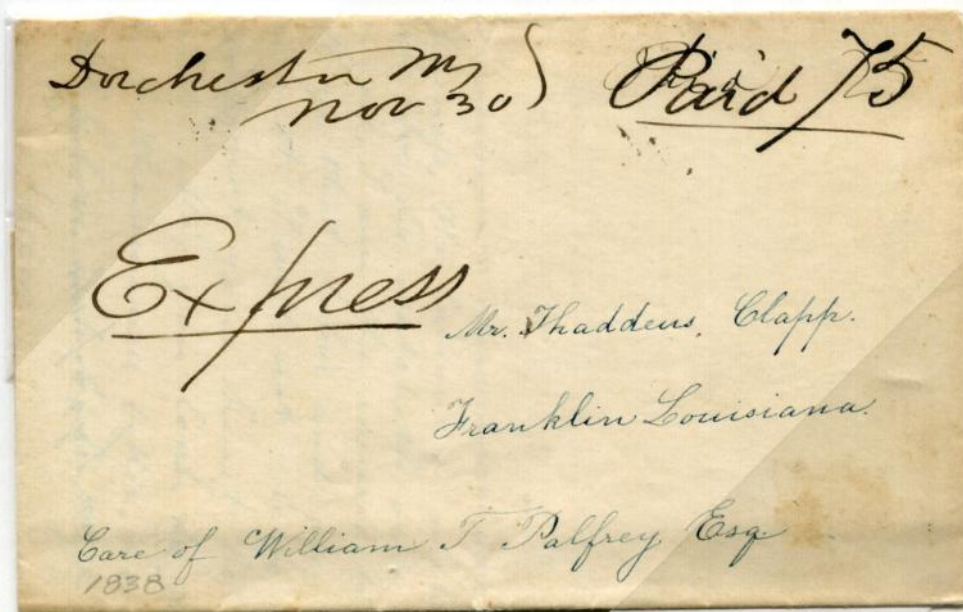 Dorchester Ms Paid 75
Nov 30
Express
Mr. Thaddeus, Clapp.
Franklin Louisiana.
Care of William T Palfrey Esq
1838